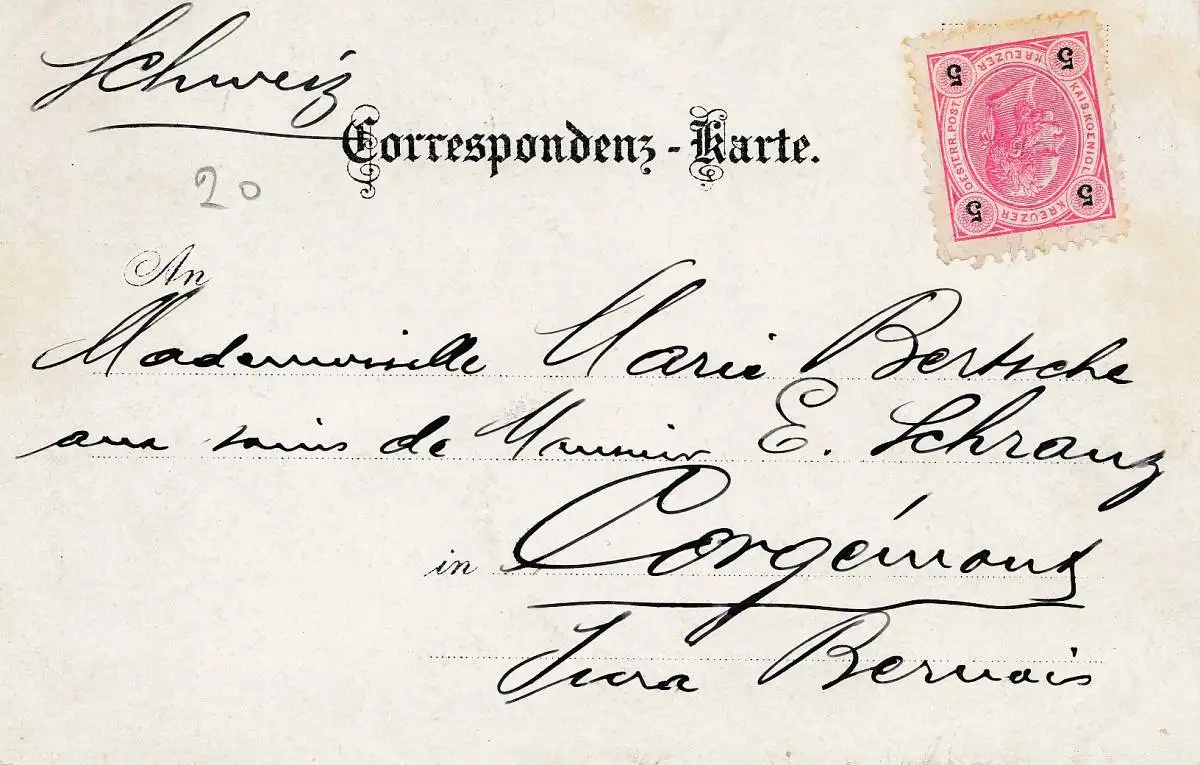 Schweiz
Correspondenz-Karte.
20
5 KREUZER 5
OESTERR. POST KAIS. KOENIGL.
5 KREUZER 5
An
Mademoiselle Marie Bertsche
aux soins de Monsieur E. Schranz
in Corgémont
Jura Bernois